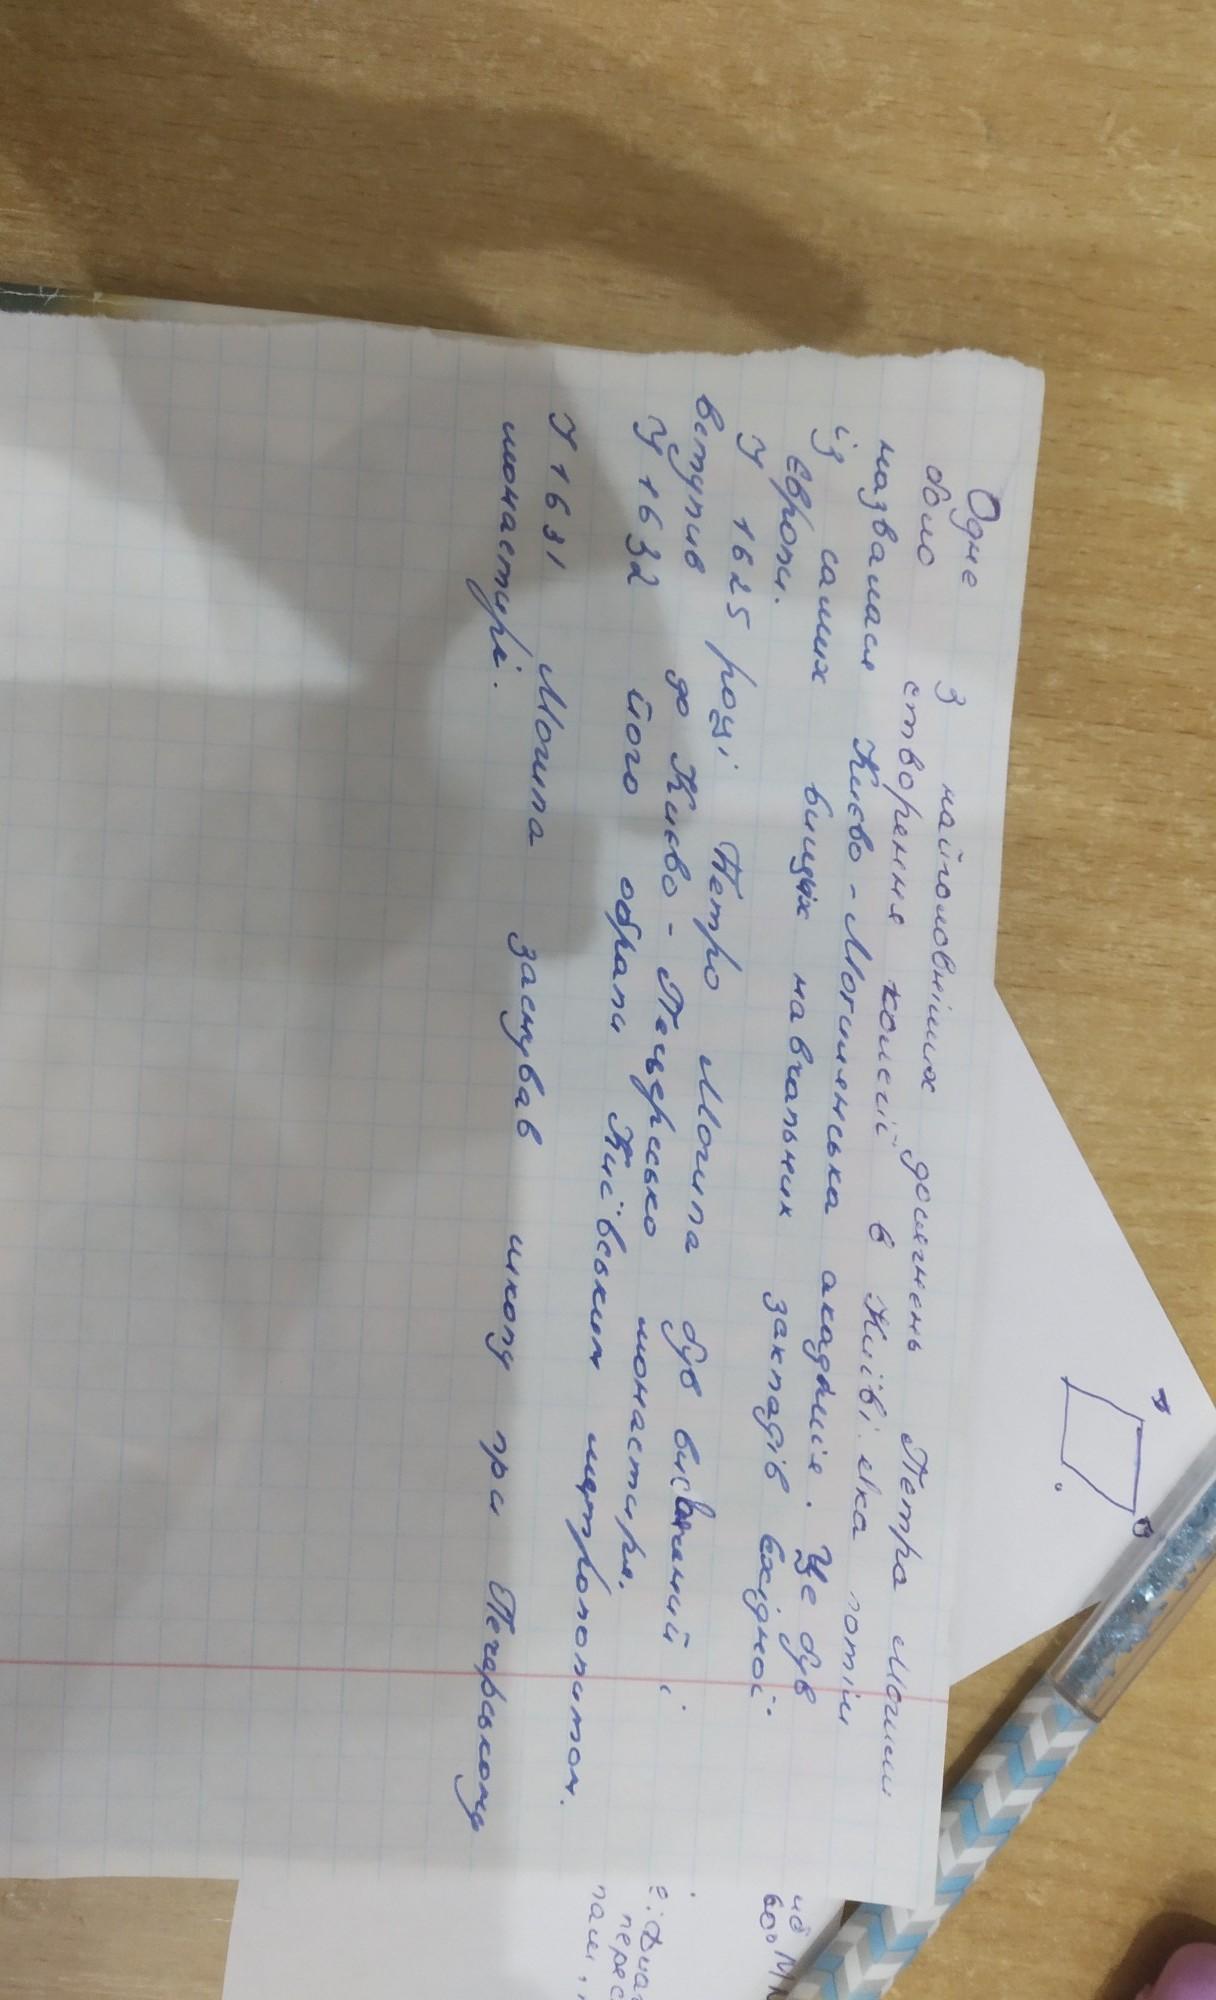 Одне з найголовніших досягнень Петра Могили
було створення колегії в Київі, яка потім
називалася Києво-Могилянська академія. Це був
із самих вищих навчальних закладів Східної
Європи.
У 1625 році Петро Могила був висвячений і
вступив до Києво-Печерсько монастиря.
У 1632 його обрали Київським митрополитом.
У 1631 Могила заснував школу при Печерському
монастирі.